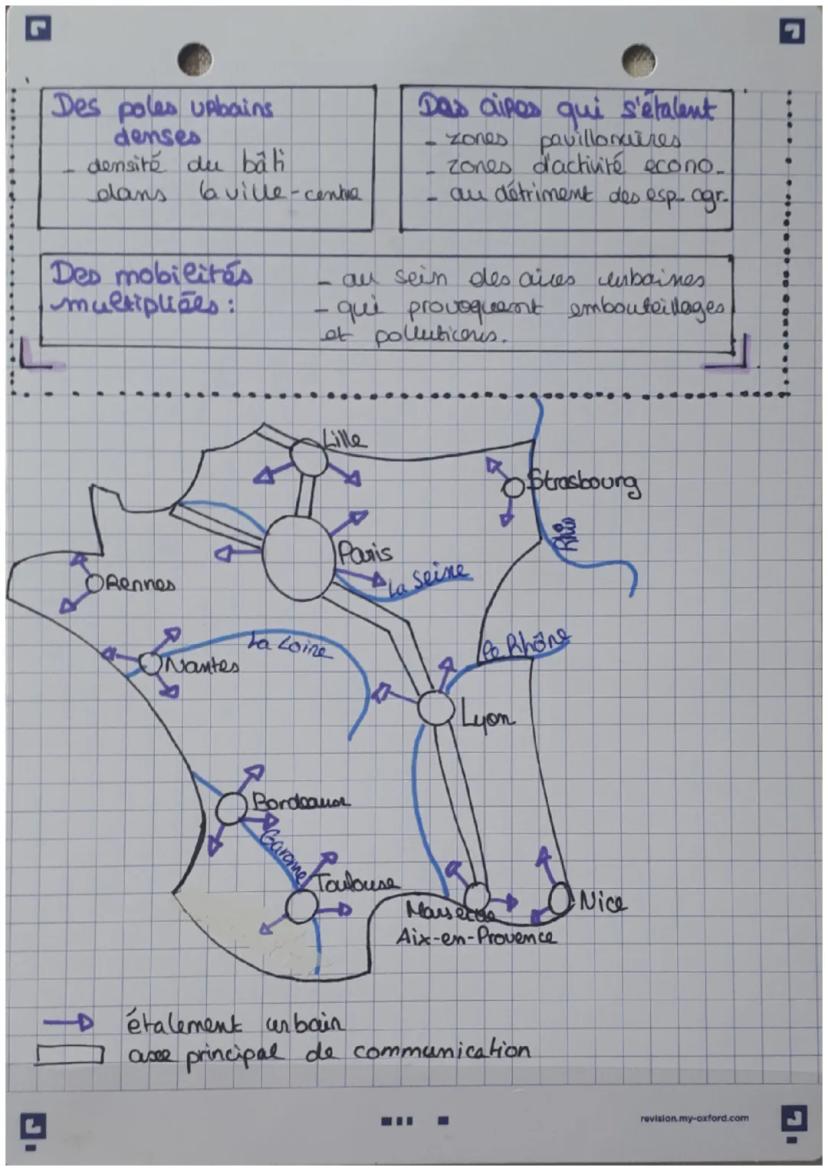 Des poles urbains
denses
- densité du bâti
dans la ville-centre
Des aires qui s'étalent
- zones pavillonaires
- zones d'activité econo-
- au détriment des esp. agr.
Des mobilités
multipliées :
- au sein des aires urbaines
- qui provoquent embouteillages
et pollutions.
Lille
Strasbourg
Rhin
Paris
La Seine
Rennes
La Loire
Nantes
Le Rhône
Lyon
Bordeaux
Garonne
Toulouse
Marseille
Aix-en-Provence
Nice
étalement urbain
axe principal de communication
revision.my-oxford.com